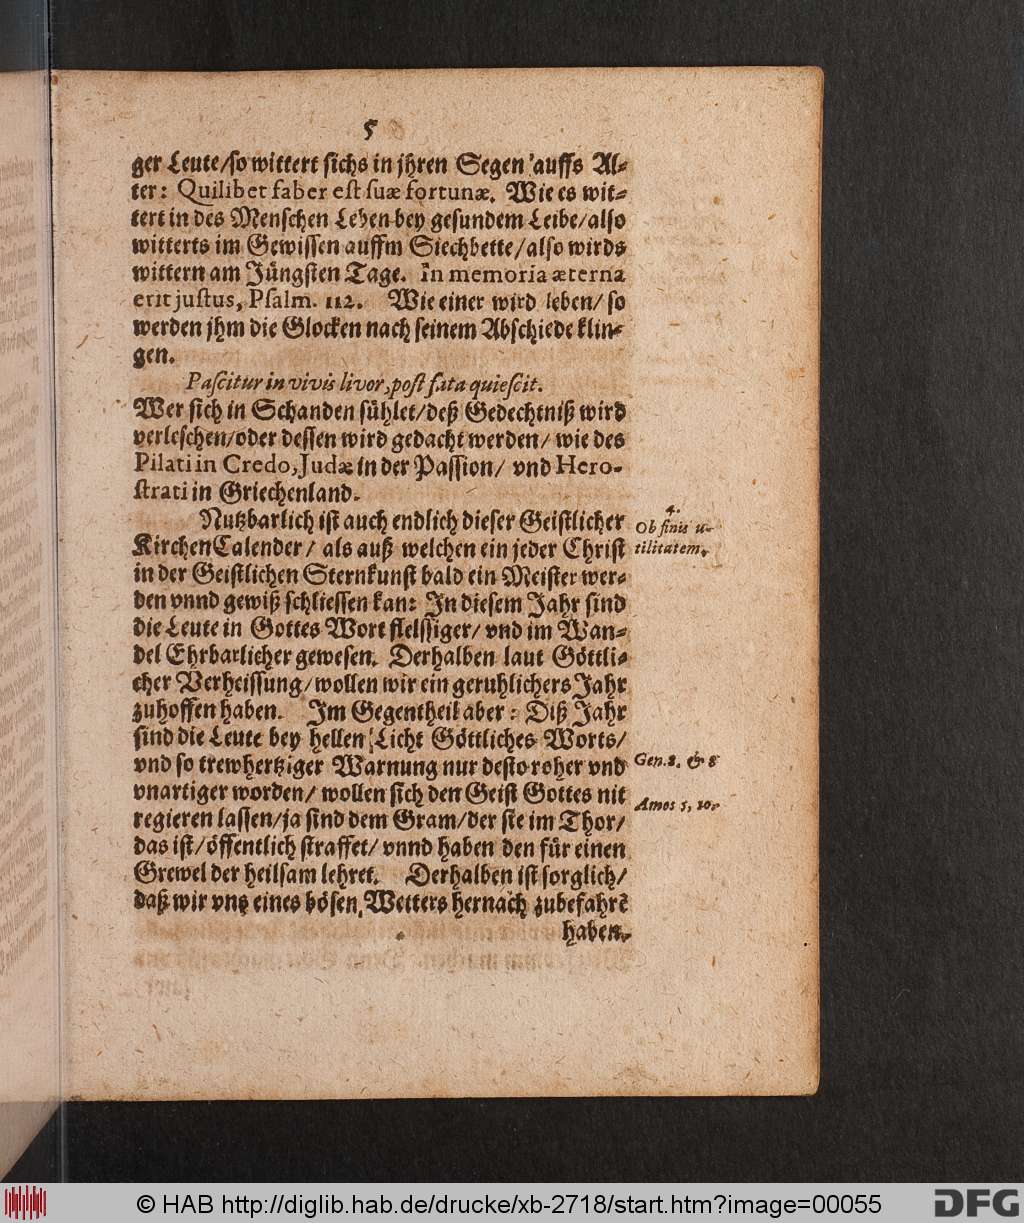 5
ger Leute/so wittert sichs in jhren Segen auffs Al-
ter: Quilibet faber est suæ fortunæ. Wie es wit-
tert in des Menschen Leben bey gesundem Leibe/also
witterts im Gewissen auffm Siechbette/also wirds
wittern am Jüngsten Tage. In memoria æterna
erit justus, Psalm. 112. Wie einer wird leben/ so
werden jhm die Glocken nach seinem Abschiede klin-
gen.
Pascitur in vivis livor, post fata quiescit.
Wer sich in Schanden sühlet/deß Gedechtniß wird
verleschen/oder dessen wird gedacht werden/ wie des
Pilati in Credo, Judæ in der Passion/ vnd Hero-
strati in Griechenland.
Nutzbarlich ist auch endlich dieser Geistlicher
4.
Ob finis u-
KirchenCalender/ als auß welchen ein jeder Christ
tilitatem.
in der Geistlichen Sternkunst bald ein Meister wer-
den vnnd gewiß schliessen kan: In diesem Jahr sind
die Leute in Gottes Wort fleissiger/ vnd im Wan-
del Ehrbarlicher gewesen. Derhalben laut Göttli-
cher Verheissung/wollen wir ein geruhlichers Jahr
zuhoffen haben. Im Gegentheil aber: Diß Jahr
sind die Leute bey hellen Licht Göttliches Worts/
vnd so trewhertziger Warnung nur desto roher vnd
Gen. 8. & 8
vnartiger worden/ wollen sich den Geist Gottes nit
Amos 5, 10.
regieren lassen/ja sind dem Gram/der sie im Thor/
das ist/öffentlich straffet/ vnnd haben den für einen
Grewel der heilsam lehret. Derhalben ist sorglich/
daß wir vns eines bösen Wetters hernach zubefahrē
haben.
© HAB http://diglib.hab.de/drucke/xb-2718/start.htm?image=00055
DFG